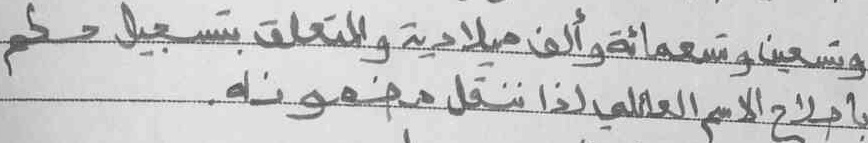 وتسعين وتسعمائة وألف ميلادية والمتعلق بتسجيل حكم
باصلاح الاسم العائلي لذا ننقل مضمونه.